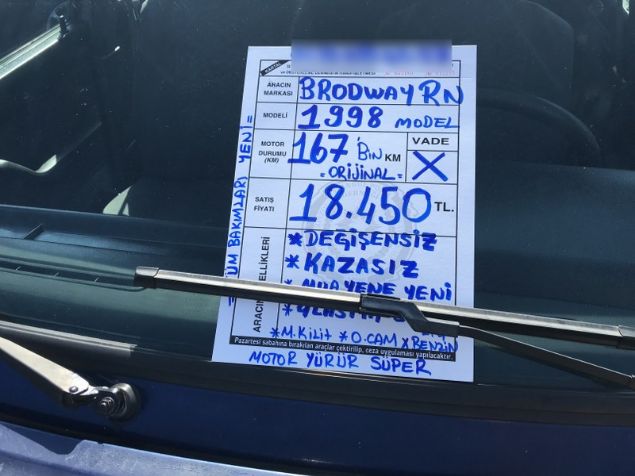 ARACIN MARKASI
BRODWAY RN
MODELİ
1998 MODEL
MOTOR DURUMU (KM)
167 BİN KM
=ORİJİNAL=
VADE
X
SATIŞ FİYATI
18.450 TL.
ARACIN
* DEĞİŞENSİZ
* KAZASIZ
* MUAYENE YENİ
* M.KİLİT * O.CAM * BENZİN
Pazartesi sabahına bırakılan araçlar çektirilip, ceza uygulaması yapılacaktır.
MOTOR YÜRÜR SÜPER
BAKIMLARI YENİ=